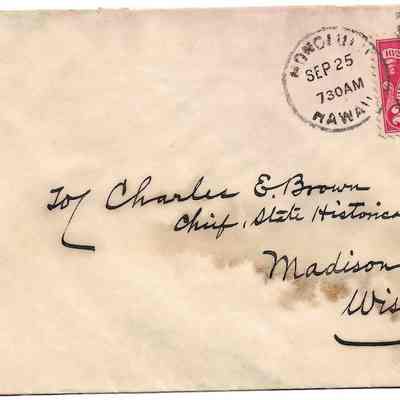 HONOLULU
SEP 25
730AM
HAWAII
To/ Charles E. Brown
Chief, State Historica
Madison
Wis